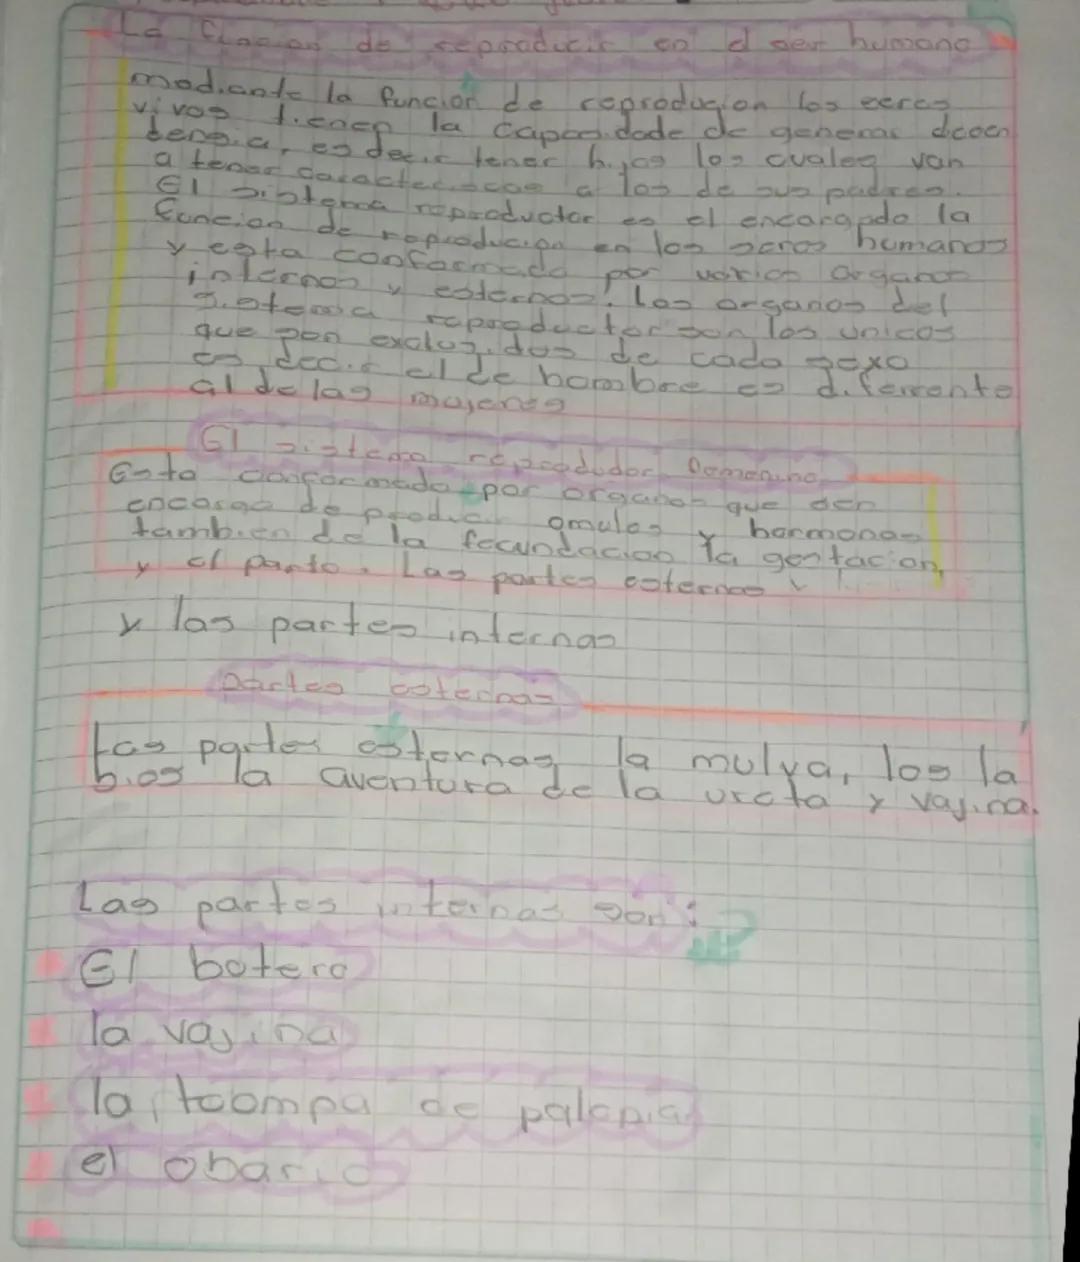 La funcion de reproducir en el ser humano
mediante la función de reproducion los ceres
vivos tienen la capacidade de generar dcoen
dencia, es decir tener hijos los cuales van
a tener caracteriscas a los de sus padres.
El sistema reproductor es el encargado la
funcion de reproducion en los seres humanos
y esta conformado por varios organos
internos y esternos. Los organos del
sistema reproductor son los unicos
que son exclusidos de cada sexo
es decir el de hombre es diferente
al de las mujeres
El sistema reproductor femenino
Esta conformado por organos que den
encarga de producir omulos y hormonas
tambien de la fecundacion la gestacion,
y el parto. Las partes esternas y
y las partes internas
partes esternas
Las partes esternas la mulva, los la
bios la aventura de la ureta y vajina.
Las partes internas son:
El botero
la vajina
la toompa de palopia
el obario